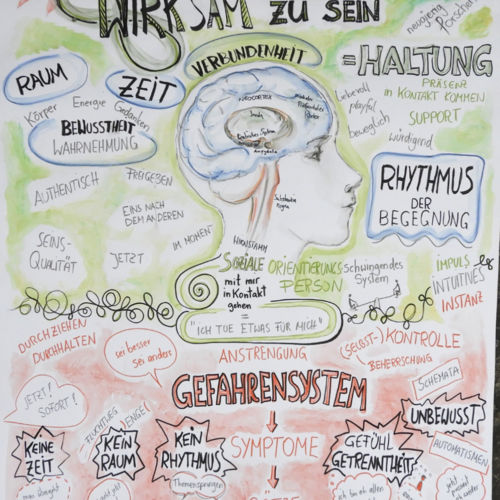 WIRKSAM ZU SEIN
VERBUNDENHEIT
= HALTUNG
RAUM
ZEIT
PRÄSENZ
in KONTAKT KOMMEN
Liebevoll
playful
beweglich
SUPPORT
würdigend
Körper
Energie
Gedanken
BEWUSSTHEIT
WAHRNEHMUNG
NEOCORTEX
Limbisches System
Amygdala
Substantia
Nigra
HIRNSTAMM
AUTHENTISCH
FREIGEBEN
EINS NACH
DEM ANDEREN
RHYTHMUS
DER
BEGEGNUNG
SEINS-
QUALITÄT
JETZT
IM MOMENT
SOZIALE ORIENTIERUNGS
PERSON
mit mir
in Kontakt
gehen
=
"ICH TUE ETWAS FÜR MICH"
schwingendes
System
IMPULS
INTUITIVES
INSTANZ
DURCHZIEHEN
DURCHHALTEN
sei besser
sei anders
ANSTRENGUNG
(SELBST-) KONTROLLE
BEHERRSCHUNG
SCHEMATA
GEFAHRENSYSTEM
JETZT!
SOFORT!
ENGE!
UNBEWUSST
KEINE
ZEIT
KEIN
RAUM
KEIN
RHYTHMUS
SYMPTOME
GEFÜHL
GETRENNTHEIT
AUTOMATISMEN
Themenspringen